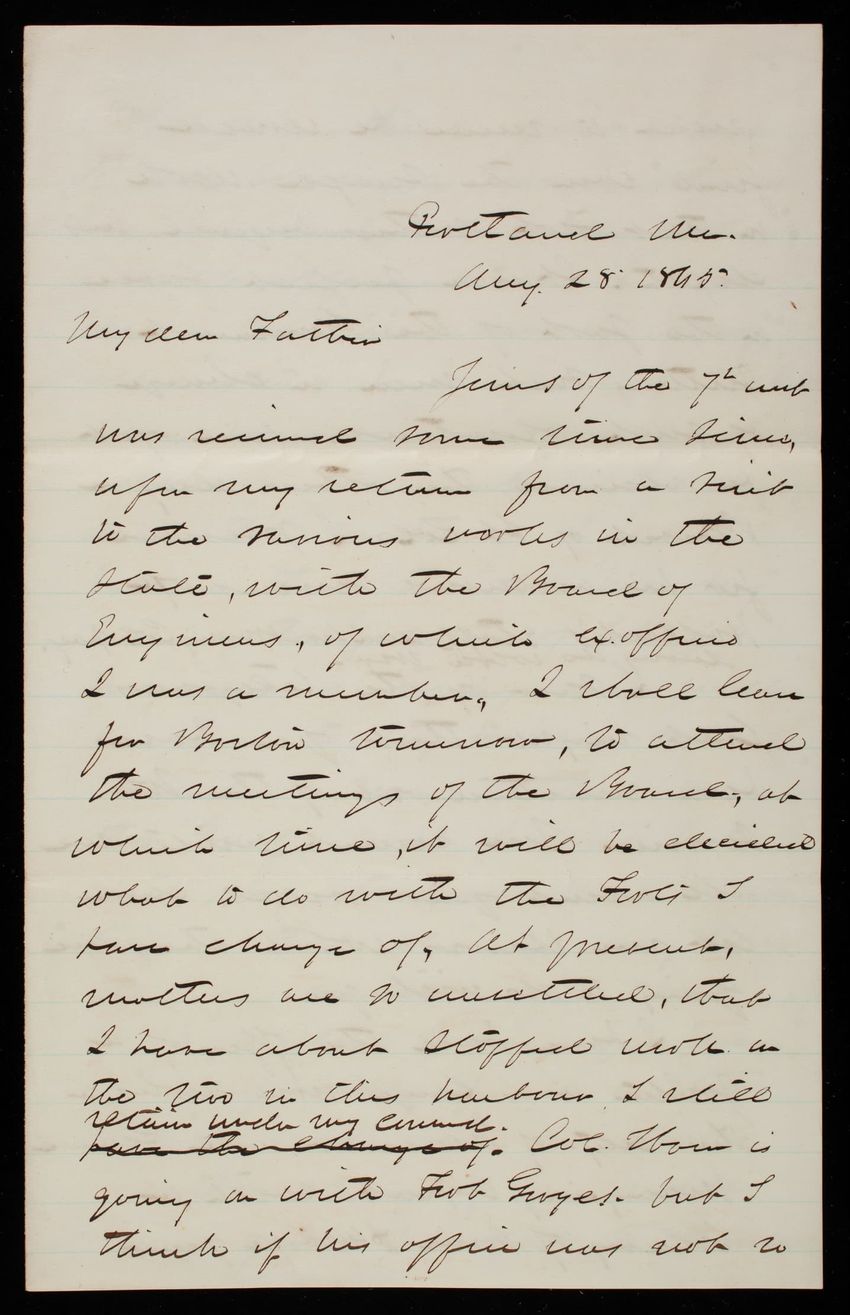 Portland Me.
Aug. 28. 1865.
My dear Father
Yours of the 7th inst
was received some time since,
upon my return from a visit
to the various works in the
State, with the Board of
Engineers, of which ex. officio
I was a member, I shall leave
for Boston tomorrow, to attend
the meetings of the Board, at
which time, it will be decided
what to do with the Forts I
have charge of, At present,
matters are so unsettled, that
I have about stopped work on
the two in this harbour I still
retain under my command.
have the charge of. Col. Thom is
going on with Fort Gorges. but I
think if his office was not so